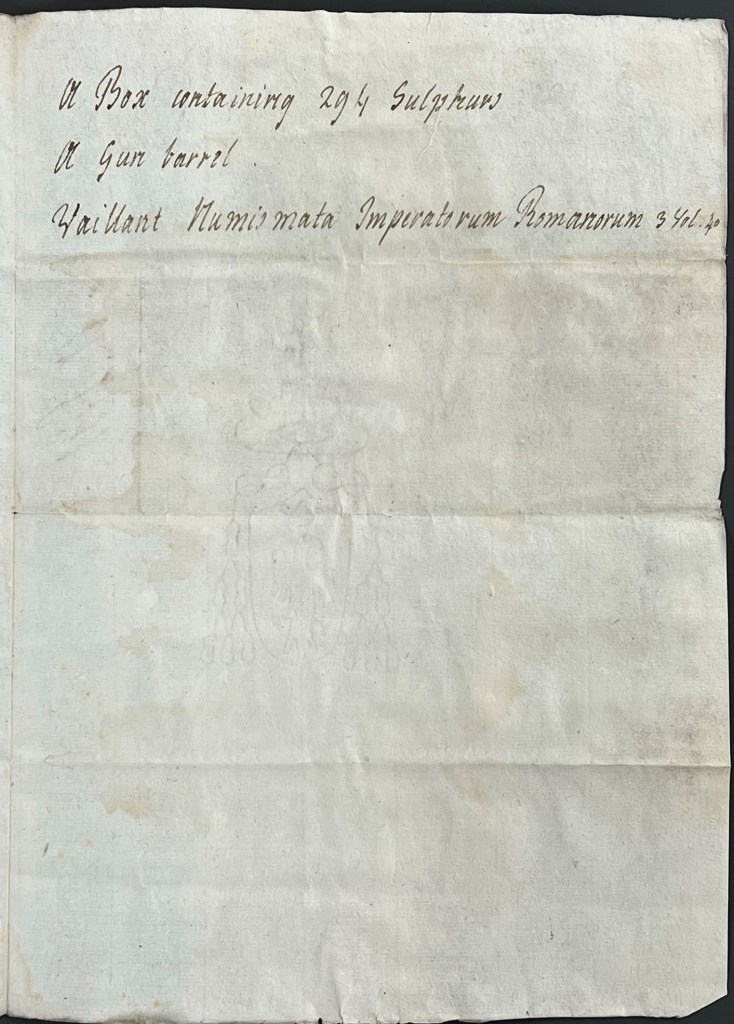 A Box containing 294 Sulphurs
A Gun barrel
Vaillant Numismata Imperatorum Romanorum 3 Vol. 4o